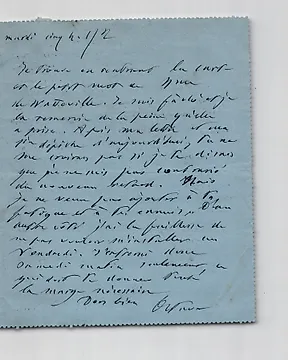 mardi cinq h. 1/2
Je trouve en rentrant la carte
et le petit mot de Mme
de Watteville. Je suis fâché et je
la remercie de la peine qu'elle
a prise. Après ma lettre et ma
dépêche d'aujourd'hui, tu ne
me croirais pas si je te disais
que je ne suis pas contrarié
du nouveau retard. Mais
Je ne veux pas ajouter à ta
fatigue et à tes ennuis. D'un
autre côté j'ai la faiblesse de
ne pas vouloir m'installer un
Vendredi. J'entrerai donc
Samedi matin seulement ce
qui doit te donner toute
la marge nécessaire
bien
Octave